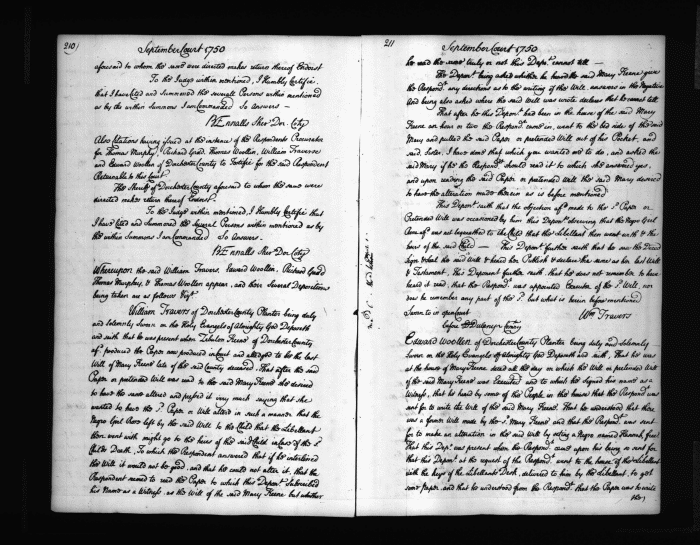 210/
September Court 1750
aforesaid to whom the same were directed makes return thereof Endorst
To the Judge within mentioned, I Humbly Certifie,
that I have Cited and Summoned the severall Persons within mentioned
as by the within Summons I am Commanded So Answers —
Ennalls Sher. Dor. Coty
Also Citations having issued at the instance of the Respondents Procurator
for Thomas Murphey, Richard Thomas Woollen, William Travers
and Edward Woollen of Dorchester County to Testifie for the said Respondent
Returnable to this Court.
The Sheriff of Dorchester County aforesaid to whom the same were
directed makes return thereof Endorst.
To the Judge within mentioned, I Humbly Certifie that
I have Cited and Summoned the severall Persons within mentioned as by
the within Summons I am Commanded So Answers.
Ennalls Sher. Dor. Coty
Whereupon the said William Travers, Edward Woollen, Richard
Thomas Murphey, & Thomas Woollen appear, and their Several Depositions
being taken are as follows Vizt.
William Travers of Dorchester County Planter being duly
and Solemnly Sworn on the Holy Evangels of Almighty God Deposeth
and saith that he was present when Zebulon Keene of Dorchester County
produced the Paper now produced in Court and alledged to be the last
Will of Mary Keene late of the said County deceased, That after the said
Paper or pretended Will was read to the said Mary Keene she desired
to have the same altered and pressed it very much saying that she
wanted to have the sd. Paper or Will altered in such a manner that the
Negro Girl left by the said Will to the Child that the Libellant
then went with might go to the heirs of the said Child in Case of the sd.
Childs Death, To which the Respondent answered that if he interlined
the Will it would not be good, and that he could not alter it, that the
Respondent seemed to read the Paper to which this Depont. Subscribed
his Name as a Witness, as the Will of the said Mary Keene but whether
211
September Court 1750
he read the same truly or not this Depot. cannot tell —
The Deponent being asked whether he heard the said Mary Keene give
the Respondt. any directions as to the writing of this Will, answers in the Negative
And being also asked where the said Will was wrote declares that he cannot tell.
That after he this Deponent had been in the house of the said Mary
Keene an hour or two the Respondt. came in, went to the bed side of the said
Mary and pulled the said Paper or pretended Will out of his Pocket, and
said Sister, I have done that which you wanted me to do, and asked the
said Mary if the Respondt. should read it to which she answered yes,
and upon reading the said Paper or pretended Will the said Mary desired
to have the alteration made therein as is before mentioned.
This Deponent saith that the objection made to the sd. Paper or
Pretended Will was occasioned by him this Deponent observing that the Negro Girl
was not bequeathed to the Child that the Libellant then went with & the
heirs of the said Child — This Deponent further saith that he saw the Deced.
sign what she said Will & heard her Publish & declare the same as her last Will
& Testament, This Deponent further saith that he does not remember to have
heard it read, that the Respondt. was appointed Executor of the sd. Will, nor
does he remember any part of the sd. but what is herein before mentioned
Sworn to in open Court
Wm Travers
before
Edward Woollen of Dorchester County Planter being duly and Solemnly
Sworn on the Holy Evangels of Almighty God Deposeth and saith, That he was
at the house of Mary Keene deced. all the day on which the Will or pretended Will
of the said Mary Keene was Executed and to which he signed his name as a
Witness, that he heard by some of the People in the house that the Respondt. was
sent for to write the Will of the said Mary Keene. That he understood that there
was a former Will made by the sd. Mary Keene and that the Respondt. was sent
for to make an alteration in the said Will by setting a Negro named free,
That this Dept. was present when the Respondt. came upon his being so sent for
that this Deponent at the request of the Respondt. went to the house of the Libellant
with the keys of the Libellants Desk, delivered to him by the Libellant, to get
some paper, and that he understood from the Respondt. that the Paper was to write
the